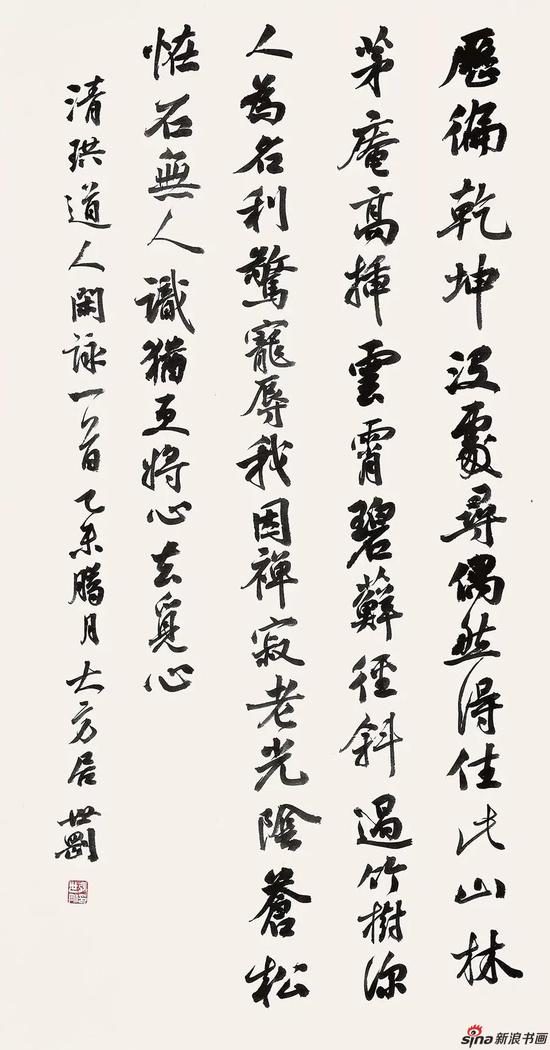 歷徧乾坤没處尋偶然得住此山林
茅庵高揷雲霄碧蘚徑斜過竹樹深
人為名利驚寵辱我因禪寂老光陰蒼松
恠石無人識猶更將心去覓心
清珙道人閑詠一首乙未臘月大方居世剛
sina新浪书画